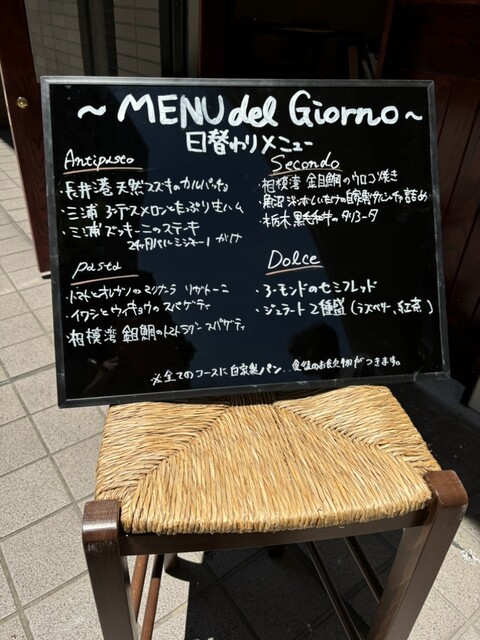 ~ MENU del Giorno ~
日替わりメニュー
Antipasto
・長井港 天然スズキのカルパッチョ
・三浦 メロンと生ハム
・三浦ズッキーニのステーキ
24ヶ月パルミジャーノがけ
Pasta
・トマトとオレガノの リガトーニ
・イワシとウイキョウのスパゲティ
・相模湾 金目鯛のトマトラグー スパゲティ
Secondo
・相模湾 金目鯛のウロコ焼き
・魚沼 しいたけの自家製サルシッチャ詰め
・栃木 黒毛和牛のタリアータ
Dolce
・アーモンドのセミフレッド
・ジェラート2種盛(ラズベリー、紅茶)
※全てのコースに自家製パン、食後のお飲み物がつきます。